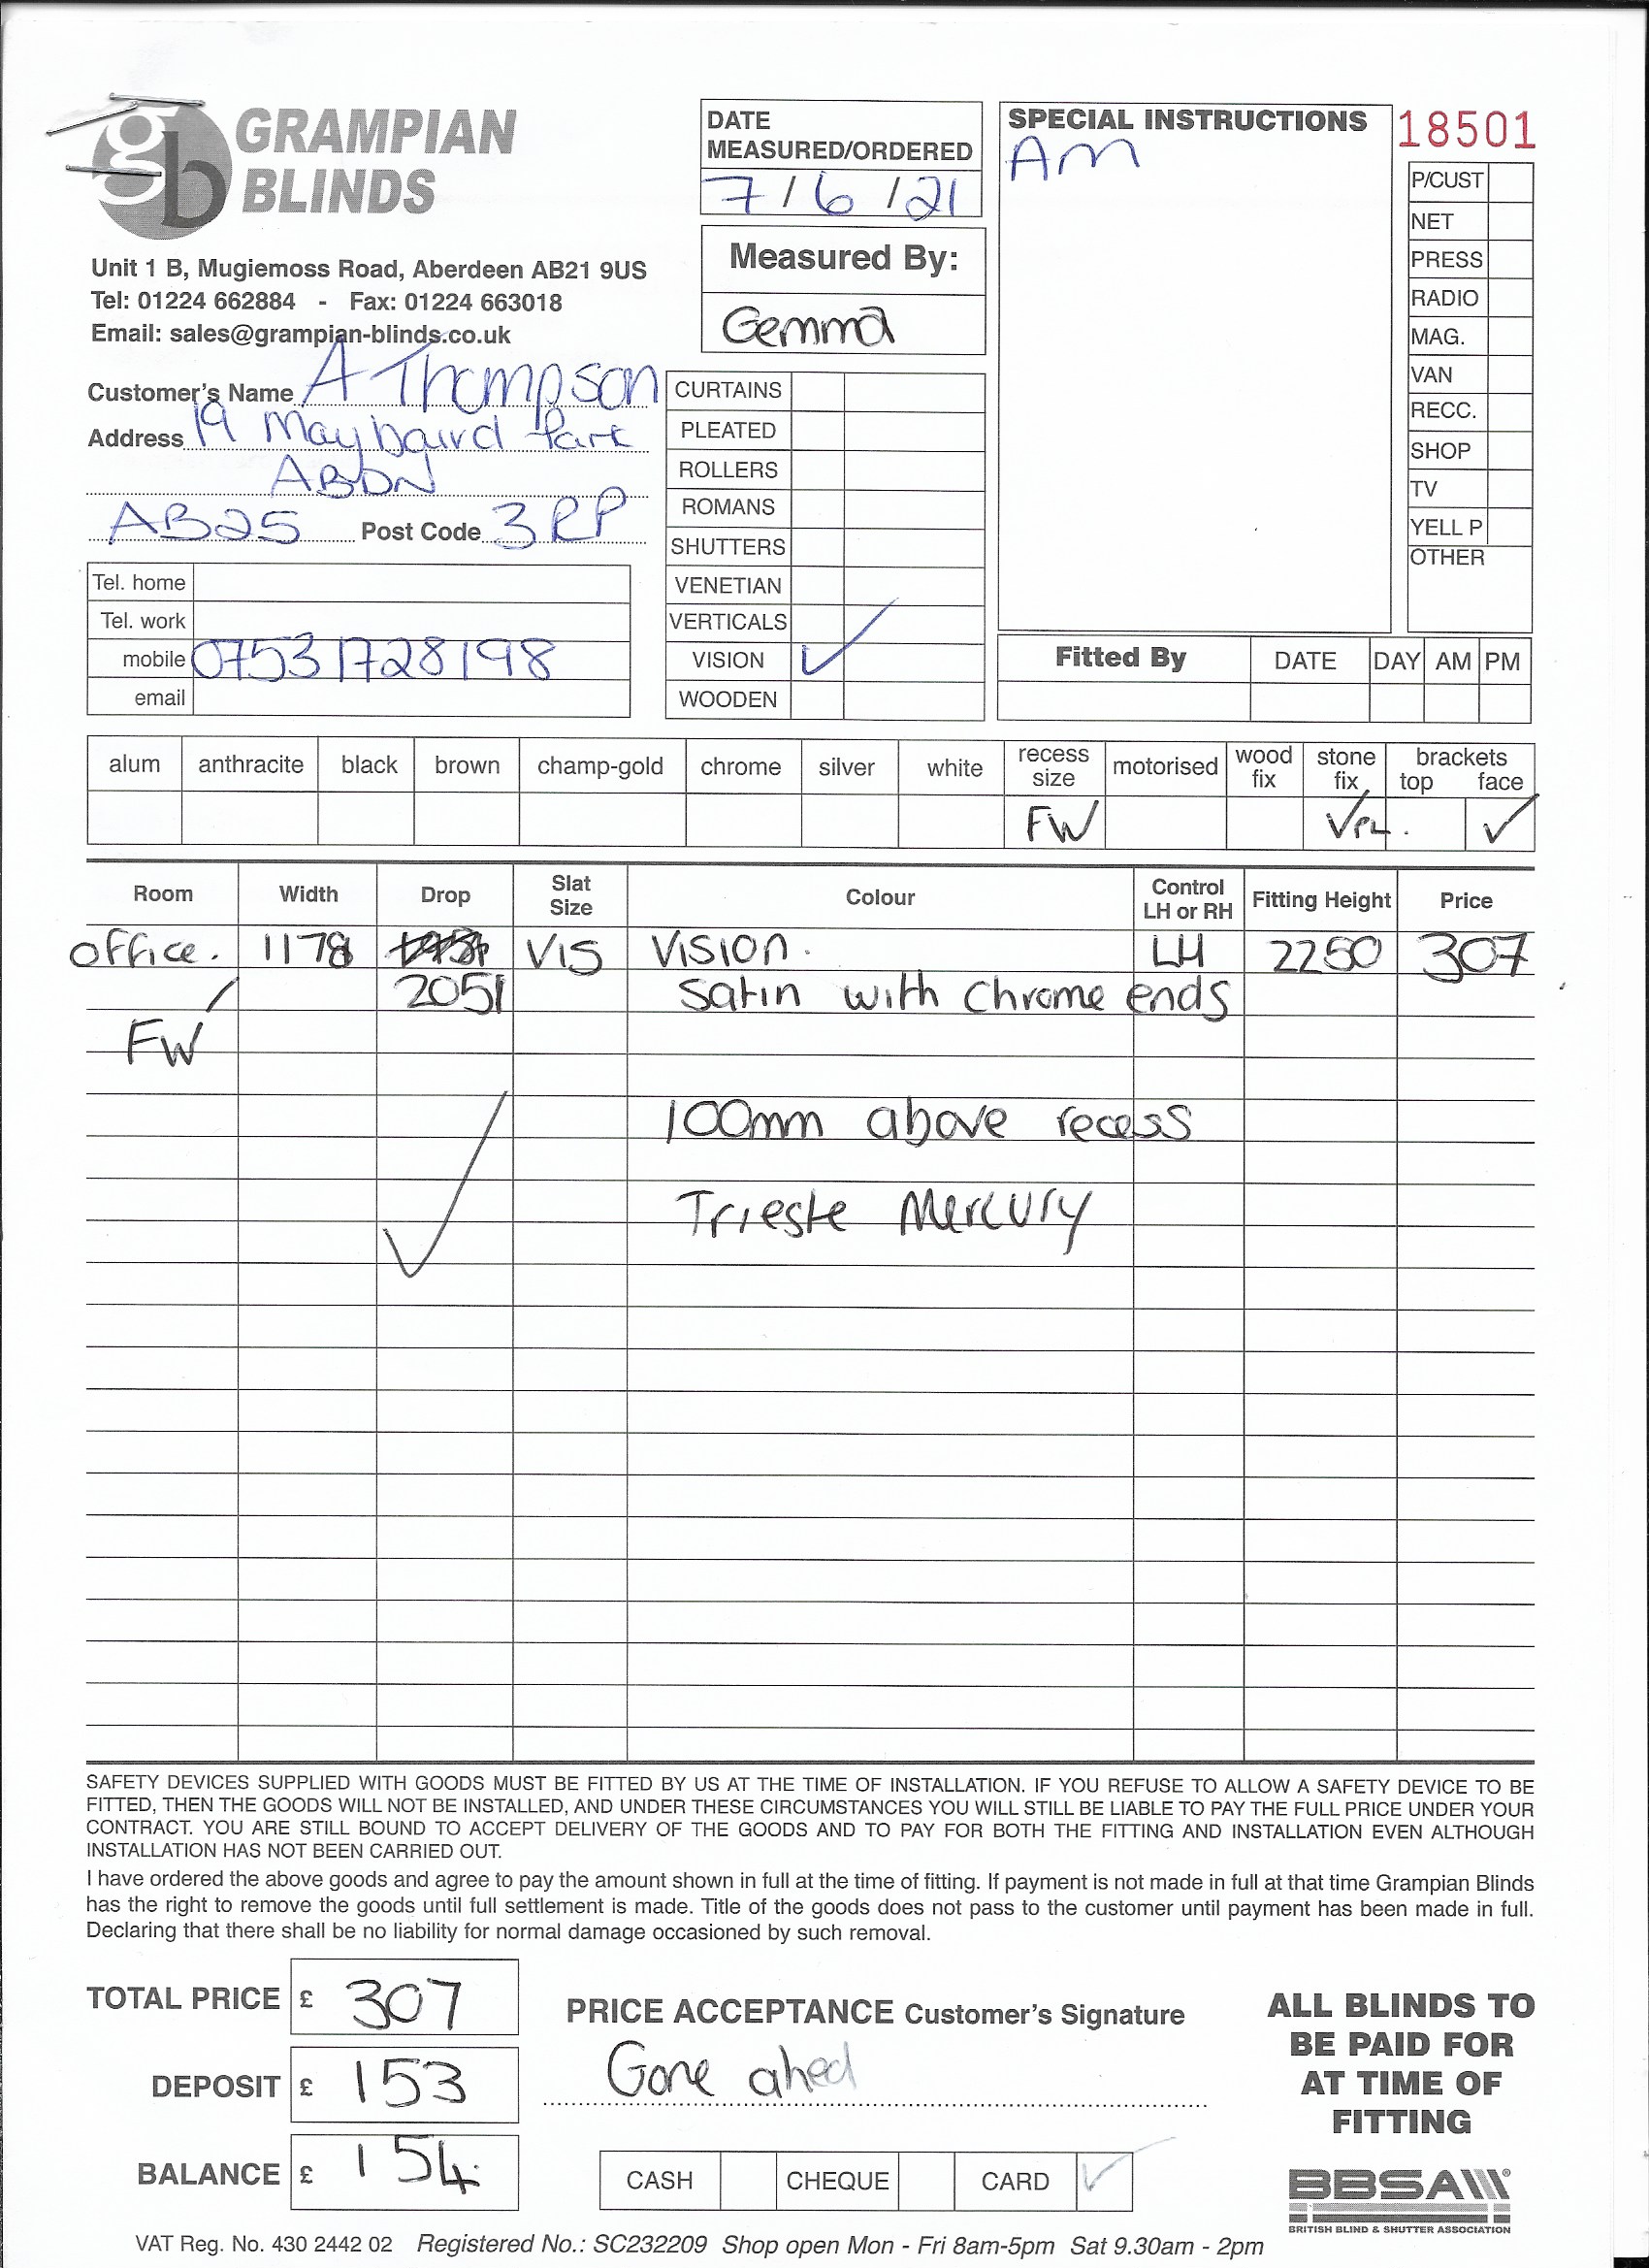 gb GRAMPIAN BLINDS
Unit 1 B, Mugiemoss Road, Aberdeen AB21 9US
Tel: 01224 662884 - Fax: 01224 663018
Email: sales@grampian-blinds.co.uk
Customer's Name A Thompson
Address 19 May baird Park
ABDN
AB25 Post Code 3RP
Tel. home
Tel. work
mobile 07531728198
email
DATE
MEASURED/ORDERED
7/6/21
Measured By:
Gemma
CURTAINS
PLEATED
ROLLERS
ROMANS
SHUTTERS
VENETIAN
VERTICALS
VISION ✓
WOODEN
SPECIAL INSTRUCTIONS
AM
18501
P/CUST
NET
PRESS
RADIO
MAG.
VAN
RECC.
SHOP
TV
YELL P
OTHER
Fitted By DATE DAY AM PM
alum anthracite black brown champ-gold chrome silver white recess size motorised wood fix stone fix brackets top face
FW ✓ ✓
Room Width Drop Slat Size Colour Control LH or RH Fitting Height Price
office. 1178 VIS Vision. LH 2250 307
2051 Satin with Chrome ends
FW
100mm above recess
Trieste Mercury
SAFETY DEVICES SUPPLIED WITH GOODS MUST BE FITTED BY US AT THE TIME OF INSTALLATION. IF YOU REFUSE TO ALLOW A SAFETY DEVICE TO BE
FITTED, THEN THE GOODS WILL NOT BE INSTALLED, AND UNDER THESE CIRCUMSTANCES YOU WILL STILL BE LIABLE TO PAY THE FULL PRICE UNDER YOUR
CONTRACT. YOU ARE STILL BOUND TO ACCEPT DELIVERY OF THE GOODS AND TO PAY FOR BOTH THE FITTING AND INSTALLATION EVEN ALTHOUGH
INSTALLATION HAS NOT BEEN CARRIED OUT.
I have ordered the above goods and agree to pay the amount shown in full at the time of fitting. If payment is not made in full at that time Grampian Blinds
has the right to remove the goods until full settlement is made. Title of the goods does not pass to the customer until payment has been made in full.
Declaring that there shall be no liability for normal damage occasioned by such removal.
TOTAL PRICE £ 307
DEPOSIT £ 153
BALANCE £ 154.
PRICE ACCEPTANCE Customer's Signature
Gone ahed
CASH CHEQUE CARD ✓
ALL BLINDS TO
BE PAID FOR
AT TIME OF
FITTING
BBSA®
BRITISH BLIND & SHUTTER ASSOCIATION
VAT Reg. No. 430 2442 02 Registered No.: SC232209 Shop open Mon - Fri 8am-5pm Sat 9.30am - 2pm